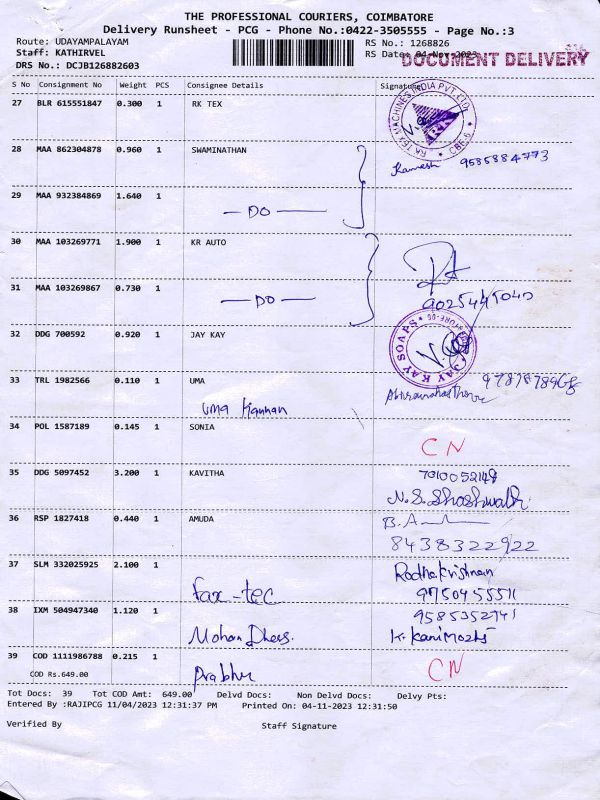 THE PROFESSIONAL COURIERS, COIMBATORE
Delivery Runsheet - PCG - Phone No.:0422-3505555 - Page No.:3
Route: UDAYAMPALAYAM RS No.: 1268826
Staff: KATHIRVEL RS Date: 04-Nov-2023
DOCUMENT DELIVERY
DRS No.: DCJB126882603
S No Consignment No Weight PCS Consignee Details Signature
27 BLR 615551847 0.300 1 RK TEX
28 MAA 862304878 0.960 1 SWAMINATHAN Ramesh 9585884773
29 MAA 932384869 1.640 1
— DO —
30 MAA 103269771 1.900 1 KR AUTO
31 MAA 103269867 0.730 1
— DO — 9025445040
32 DDG 700592 0.920 1 JAY KAY
JAY KAY SOAPS
33 TRL 1982566 0.110 1 UMA
Uma Kannan
34 POL 1587189 0.145 1 SONIA
CN
35 DDG 5097452 3.200 1 KAVITHA 7010052148
36 RSP 1827418 0.440 1 AMUDA
8438322922
37 SLM 332025925 2.100 1 Radhakrishnan
fax-tec 9750455511
38 IXM 504947340 1.120 1 9585352741
Mohan K. Kanimozhi
39 COD 1111986788 0.215 1 CN
COD Rs.649.00 Prabhu
Tot Docs: 39 Tot COD Amt: 649.00 Delvd Docs: Non Delvd Docs: Delvy Pts:
Entered By :RAJIPCG 11/04/2023 12:31:37 PM Printed On: 04-11-2023 12:31:50
Verified By Staff Signature